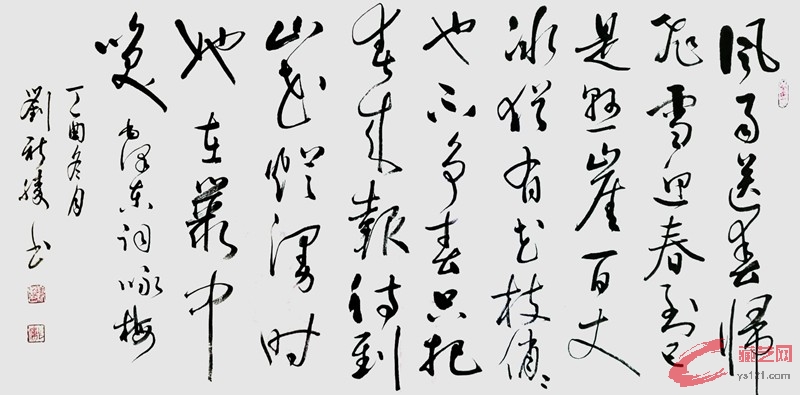 風雨送春歸
飛雪迎春到已
是懸崖百丈
冰猶有花枝俏〻
也不争春只把
春来報待到
山花爛漫时
她在叢中
咲
毛澤东词咏梅
丁酉冬月
劉新勝书
藏艺网
ys121.com